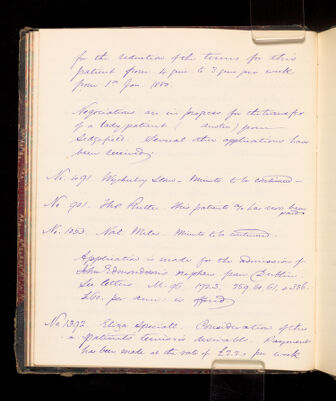 for the reduction of the terms for this
patient from 4 gns to 3 gns per week
from 1st Jan. 1880.
Negociations are in progress for the transfer
of a lady patient ( ) from
Sedgefield. Several other applications have
been received.
No. 491. Minute to be continued
No 901. This patient a/c has now been
paid.
No. 1050. Miles. Minute to be continued.
Application is made for the admission of
John Edmondson's nephew from Dublin.
See letters M. 96. 1723.
£60. per ann. is offered
No 1392. Eliza Consideration of this
patient's terms is desirable. Payment
has been made at the rate of £2.2.0 per week